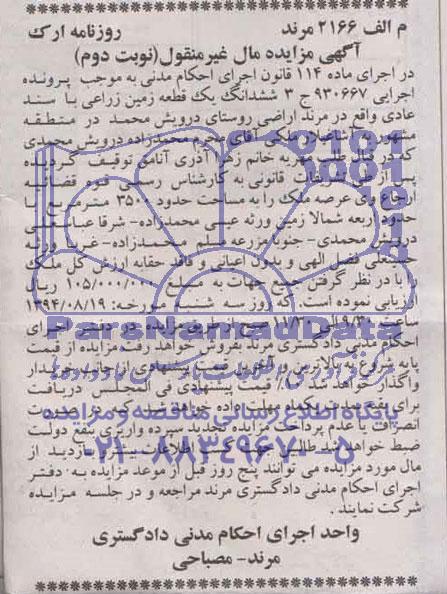 م الف ۲۱۶۶ مرند روزنامه ارک
آگهی مزایده مال غیرمنقول(نوبت دوم)
در اجرای ماده ۱۱۴ قانون اجرای احکام مدنی به موجب پرونده
اجرایی ۹۳۰۶۶۷ ج ۳ ششدانگ یک قطعه زمین زراعی با سند
عادی واقع در مرند اراضی روستای درویش محمد در منطقه
مشهور به ملکی آقای محرم محمدزاده درویش محمدی
که در قبال طلب مهریه خانم زهرا آذری آنامق توقیف گردیده
پس از طی تشریفات قانونی به کارشناس رسمی قوه قضائیه
ارجاع وی عرصه ملک را به مساحت حدود ۳۵۰۰ متر مربع با
حدود اربعه شمالا زمین ورثه عیسی محمدزاده- شرقا عباسعلی
درویش محمدی- جنوبا مزرعه مسلم محمدزاده- غربا ورثه
فضل الهی و بدون اعیانی و فاقد حقابه ارزش کل ملک
را با در نظر گرفتن جمیع جهات به مبلغ ۱۰۵/۰۰۰/۰۰۰ ریال
ارزیابی نموده است. که روز سه شنبه مورخه: ۱۳۹۴/۰۸/۱۹
ساعت ۹/۳۰ الی صبح از طریق مزایده در دفتر اجرای
احکام مدنی دادگستری مرند بفروش خواهد رفت مزایده از قیمت
پایه شروع به بالاترین و آخرین قیمت پیشنهادی از جانب خریدار
واگذار خواهد شد ۱۰٪ قیمت پیشنهادی فی المجلس دریافت
برای بقیه مدت یکماه مهلت داده خواهد شد که در صورت
انصراف یا عدم پرداخت مزایده تجدید سپرده واریزی بنفع دولت
ضبط خواهد شد طالبین جهت کسب اطلاعات بیشتر و بازدید از
مال مورد مزایده می توانند پنج روز قبل از موعد مزایده به دفتر
اجرای احکام مدنی دادگستری مرند مراجعه و در جلسه مزایده
شرکت نمایند.
واحد اجرای احکام مدنی دادگستری
مرند- مصباحی
ParsNamadData
پایگاه اطلاع رسانی مناقصه و مزایده
۰۲۱-۸۸۳۴۹۶۷۰-۵